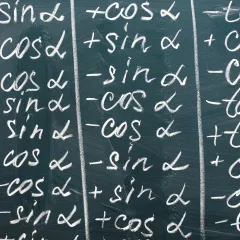 sin α +cos α
cos α +sin α +c
cos α -sin α
sin α -cos α
sin α -cos α
cos α -sin α
-cos α +sin α
-sin α +cos α